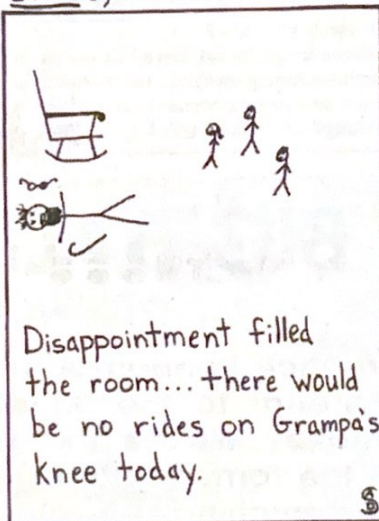 Disappointment filled
the room... there would
be no rides on Grampa's
knee today.